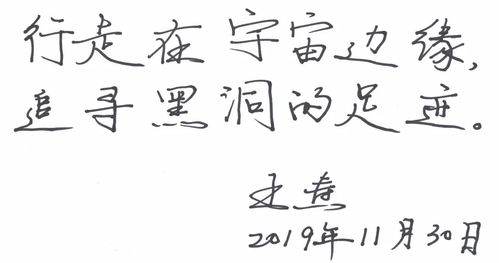 行走在宇宙边缘,
追寻黑洞的足迹。
2019年11月30日